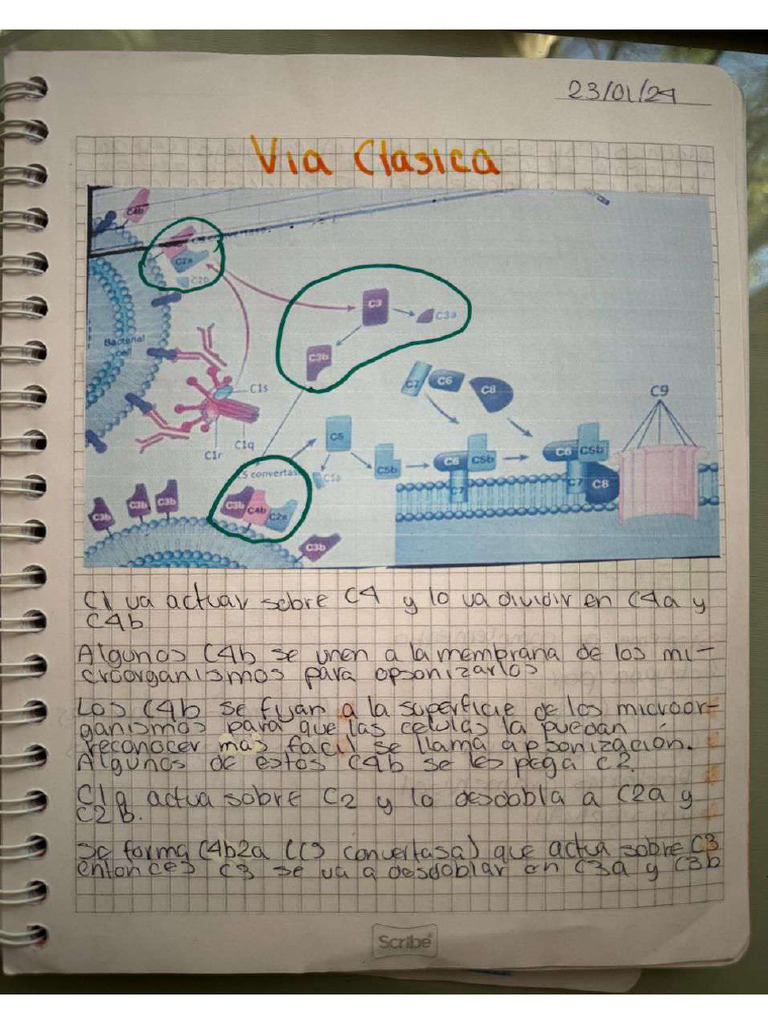 23/01/24
Via Clasica
C4b
C2a
C2b
Bacterial
cell
C3
C3a
C3b
C1s
C1r
C1q
C5
C5b
C7
C6
C8
C9
C5 convertas
C3b
C4b
C2a
C3b
C3b
C3b
C3b
C6
C5b
C7
C6
C5b
C7
C8
C1 va actuar sobre C4 y lo va dividir en C4a y
C4b
Algunos C4b se unen a la membrana de los mi-
croorganismos para opsonizarlos
Los C4b se fijan a la superficie de los microor-
ganismos para que las celulas la puedan
reconocer mas facil se llama opsonización.
Algunos de estos C4b se les pega C2.
C1q actua sobre C2 y lo desdobla a C2a y
C2b.
Se forma C4b2a (C3 convertasa) que actua sobre C3
entonces C3 se va a desdoblar en C3a y C3b
Scribe